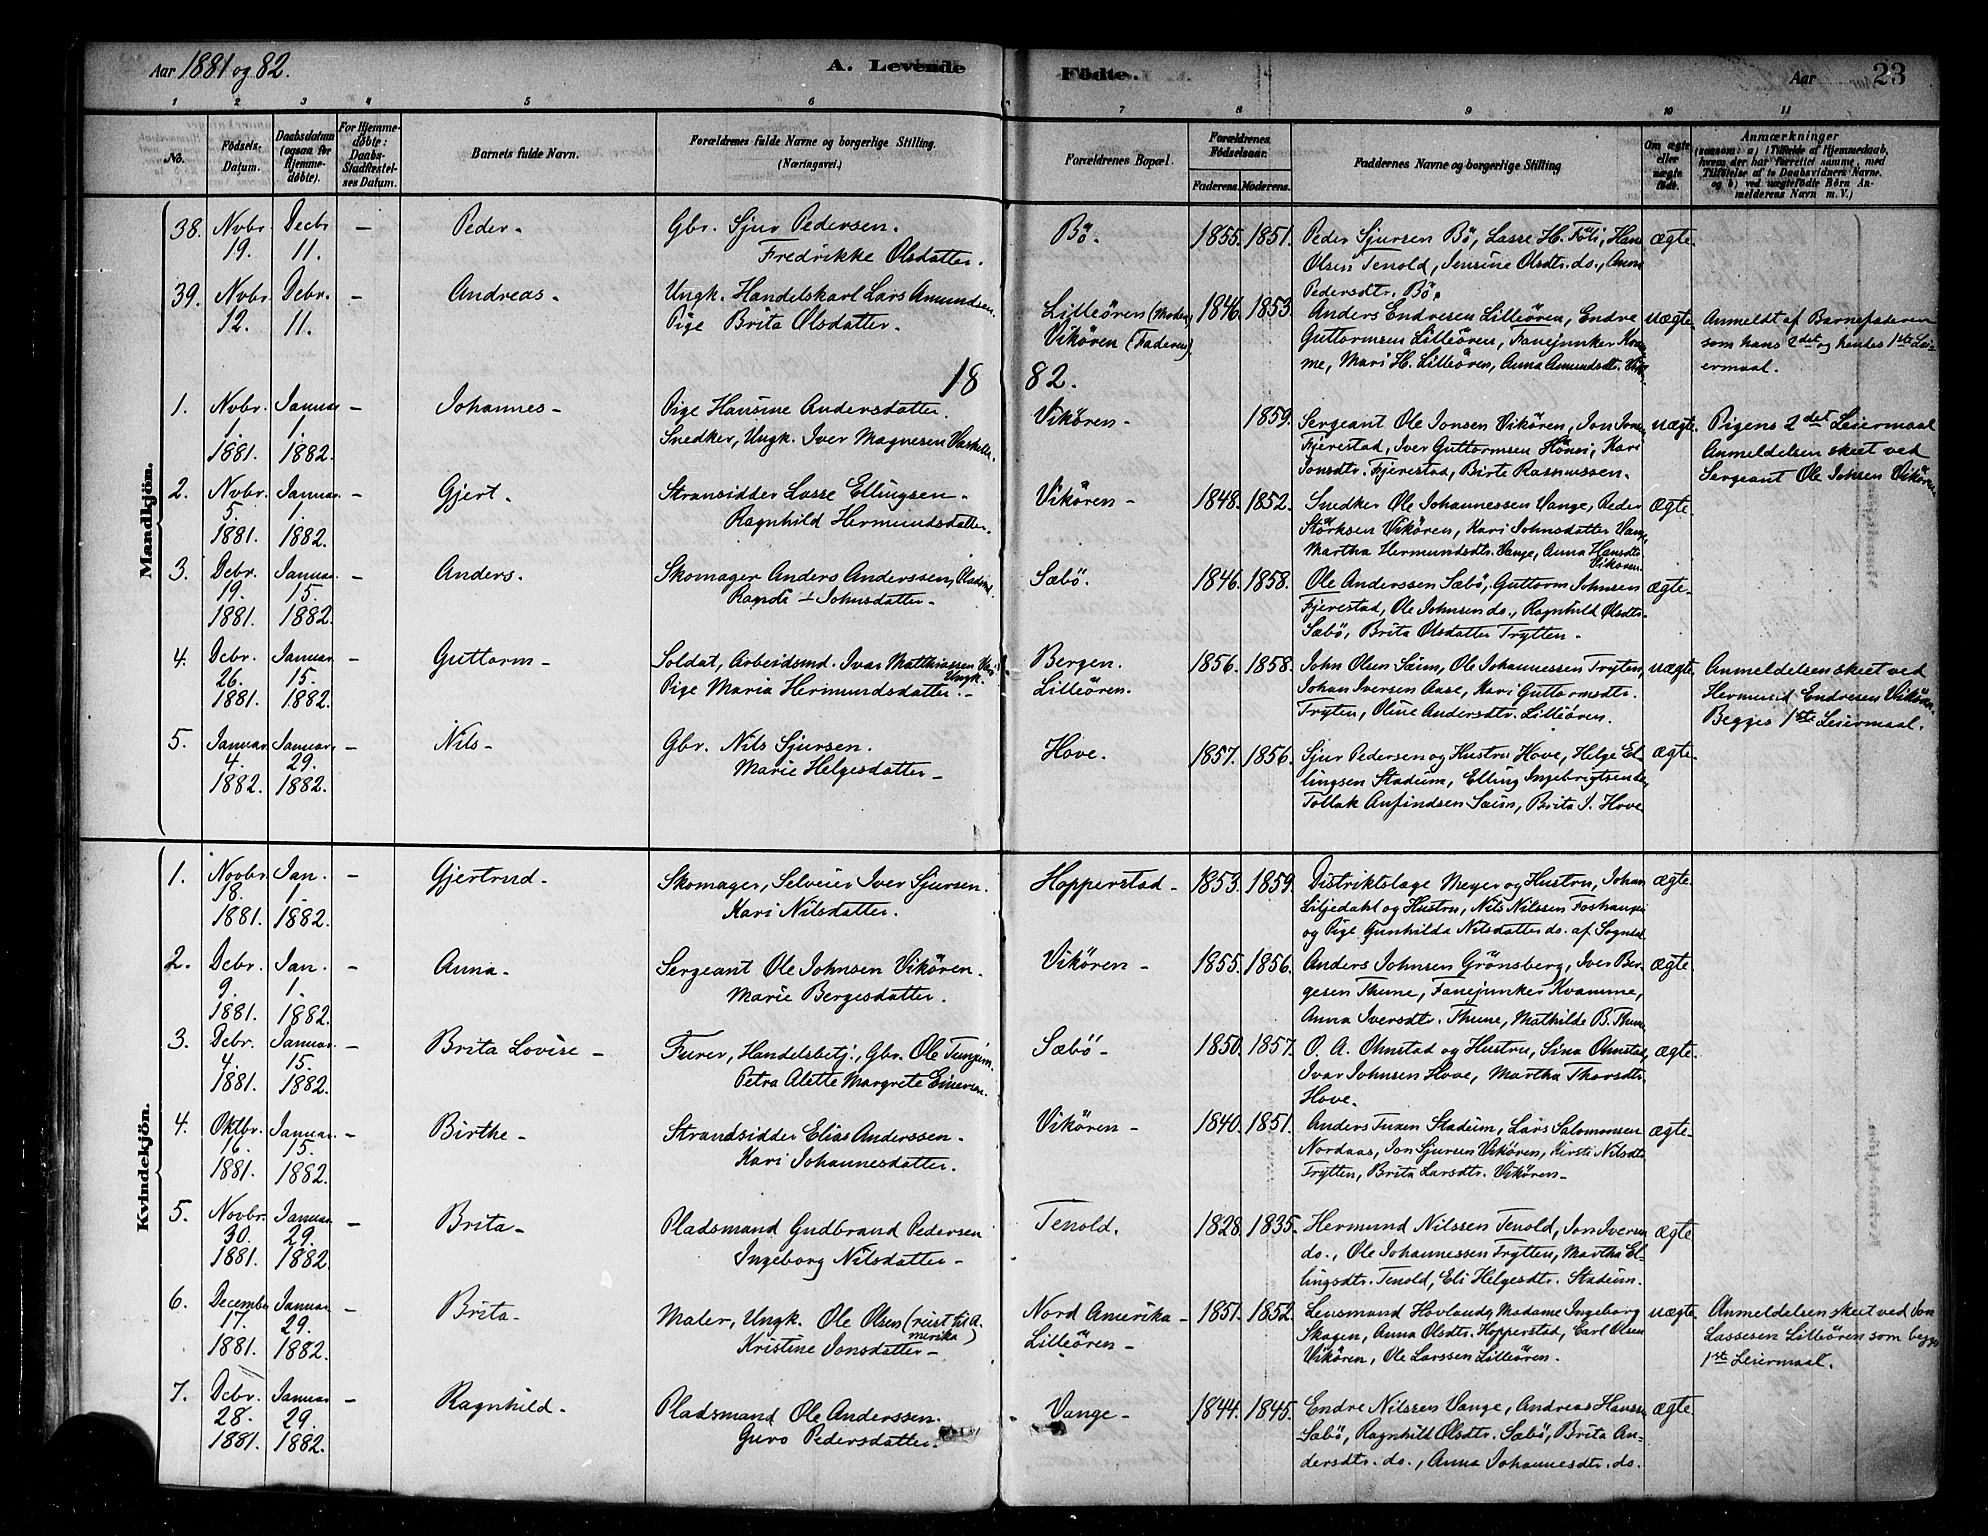 Aar 1881 og 82.
A. Levende Födte.
Aar 23
1 2 3 4 5 6 7 8 9 10 11
No.
Födsels-Datum.
Daabsdatum (ogsaa for Hjemme-döbte).
For Hjemme-döbte: Daabs-Stadfæstel-ses Datum.
Barnets fulde Navn.
Forældrenes fulde Navne og borgerlige Stilling. (Næringsvei.)
Forældrenes Bopæl.
Forældrenes Födselsaar.
Faderens. Moderens.
Faddernes Navne og borgerlige Stilling
Om ægte eller uægte födt.
Anmærkninger
(saasom: a) i Tilfælde af Hjemmedaab,
hvem der har forrettet samme, med
Tilföielse af to Daabsvidners Navne,
og b) ved uægtefödte Börn An-
melderens Navn m. V.)
Mandkjön.
38. Novbr. 19. Decbr. 11. — Peder - Gbr. Sjur Pedersen. Bö. 1855. 1851. Peder Sjursen Bö, Lasse H. Föli, Hans ægte
Fredrikke Olsdatter. Olsen Tenold, Jensine Olsdtr. do., Anna
Pedersdtr. Bö.
39. Nvbr. 12. Debr. 11. — Andreas - Ungk. Handelskarl Lars Amundsen. Lilleören (Moder) 1846. 1853. Anders Endresen Lilleören, Endre uægte Anmeldt af Barnefaderen
Pige Brita Olsdatter. Vikören (Faderen). Guttormsen Lilleören, Fanejunker Kvam- som hans 2det og hendes 1ste Lei-
me, Mari H. Lilleören, Anna Amundsdtr. Vik. ermaal.
1882.
1. Nvbr. 1. 1881. Januar 1. 1882. — Johannes - Pige Hansine Andersdatter. Vikören - 1859. Sergeant Ole Jonsen Vikören, Jon uægte. Pigens 2det Leiermaal
Snedker, Ungk. Iver Magnesen Fjerestad, Iver Guttormsen Hönsi, Kari Anmeldelsen skeet ved
Jonsdtr. Fjerestad, Birte Rasmussen. Sergeant Ole Johsen Vikören
2. Nvbr. 5. 1881. Januar 1. 1882. — Gjert. Stransidder Lasse Ellingsen - Vikören - 1848. 1852. Snedker Ole Johannessen Vange, Peder ægte.
Ragnhild Hermundsdatter. Störksen Vikören, Kari Johnsdatter Vange,
Martha Hermundsdtr. Vange, Anna Hansdtr. Vikören.
3. Debr. 19. 1881. Januar 15. 1882. — Anders. Skomager Anders Anderssen, Pladsmd. Sæbö. 1846. 1858. Ole Anderssen Sæbö, Guttorm Johnsen ægte.
Randi Johnsdatter - Fjerestad, Ole Johnsen do., Ragnhild Olsdtr.
Sæbö, Brita Olsdatter Trytten -
4. Debr. 26. 1881. Januar 15. 1882. — Guttorm - Soldat, Arbeidsmd. Ivar Matthiassen Ungk. Bergen. 1856. 1858. John Olsen Seim, Ole Johannessen Tryten, uægte Anmeldelsen skeet ved
Pige Maria Hermundsdatter. - Lilleören. Johan Iversen Aase, Kari Guttormsdtr. Hermund Endresen Vikören.
Tryten, Oline Andersdtr. Lilleören. Begges 1ste Leiermaal.
5. Januar 4. 1882. Januar 29. 1882. — Nils - Gbr. Nils Sjursen. Hove. 1857. 1856. Sjur Pedersen og Hustru Hove, Helge El- ægte.
Marie Helgesdatter - lingsen Stadeim, Elling Ingebrigtsen do.,
Tollak Anfindsen Seim, Brita I. Hove
Kvindekjön.
1. Novbr. 18. 1881. Jan. 1. 1882. — Gjertrud - Skomager, Selveier Iver Sjursen. Hopperstad - 1853. 1859. Distriktslæge Meyer og Hustru, Johan ægte.
Kari Nilsdatter. Liljedahl og Hustru, Nils Nilssen
og Pige Gunhilda Nilsdatter do. af Sogndal
2. Debr. 9. 1881. Jan. 1. 1882. — Anna - Sergeant Ole Johnsen Vikören. Vikören - 1855. 1856. Anders Johnsen Grönsberg, Iver Ber- ægte.
Marie Bergesdatter. gesen Thune, Fanejunker Kvamme,
Anna Iversdtr. Thune, Mathilde B. Thune
3. Debr. 4. 1881. Januar. 15. 1882. — Brita Lovise - Furer, Handelsbetj., Gbr. Ole Sæbö - 1850. 1857. O. A. Ohnstad og Hustru, Sina Ohnstad, ægte.
Petra Alette Margrete Einersen. Ivar Johnsen Hove, Martha Thorsdtr.
Hove.
4. Oktbr. 16. 1881. Januar 15. 1882. — Birthe - Strandsidder Elias Anderssen - Vikören - 1840. 1851. Anders Tuxen Stadeim, Lars Salomonsen ægte.
Kari Johannesdatter. Nordaas, Jon Sjursen Vikören, Kirsti Nilsdtr.
Trytten, Brita Larsdtr. Vikören -
5. Novbr. 30. 1881. Januar. 29. 1882. — Brita - Pladsmand Gudbrand Pedersen Tenold. 1828. 1835. Hermund Nilssen Tenold, Jon Iversen ægte
Ingeborg Nilsdatter - do., Ole Johannessen Trytten, Martha El-
lingsdtr. Tenold, Eli Helgesdtr. Stadeim.
6. December 17. 1881. Januar. 29. 1882. — Brita - Maler, Ungk. Ole Olsen (reist til Amerika) Nord Amerika - 1851. 1852. Lensmand Hovland, Madame Ingeborg uægte. Anmeldelsen skeet ved Jon
Kristine Jonsdatter - Lilleören - Skagen, Anna Olsdtr. Hopperstad, Carl Olsen Lassesen Lilleören som begges
Vikören, Ole Larssen Lilleören. 1ste Leiermaal.
7. Debr. 28. 1881. Januar 29. 1882. — Ragnhild - Pladsmand Ole Anderssen. Vange - 1844. 1845. Endre Nilssen Vange, Andreas Hanssen ægte
Guro Pedersdatter. Sæbö, Ragnhild Olsdtr. Sæbö, Brita An-
dersdtr. do., Anna Johannesdtr. do.